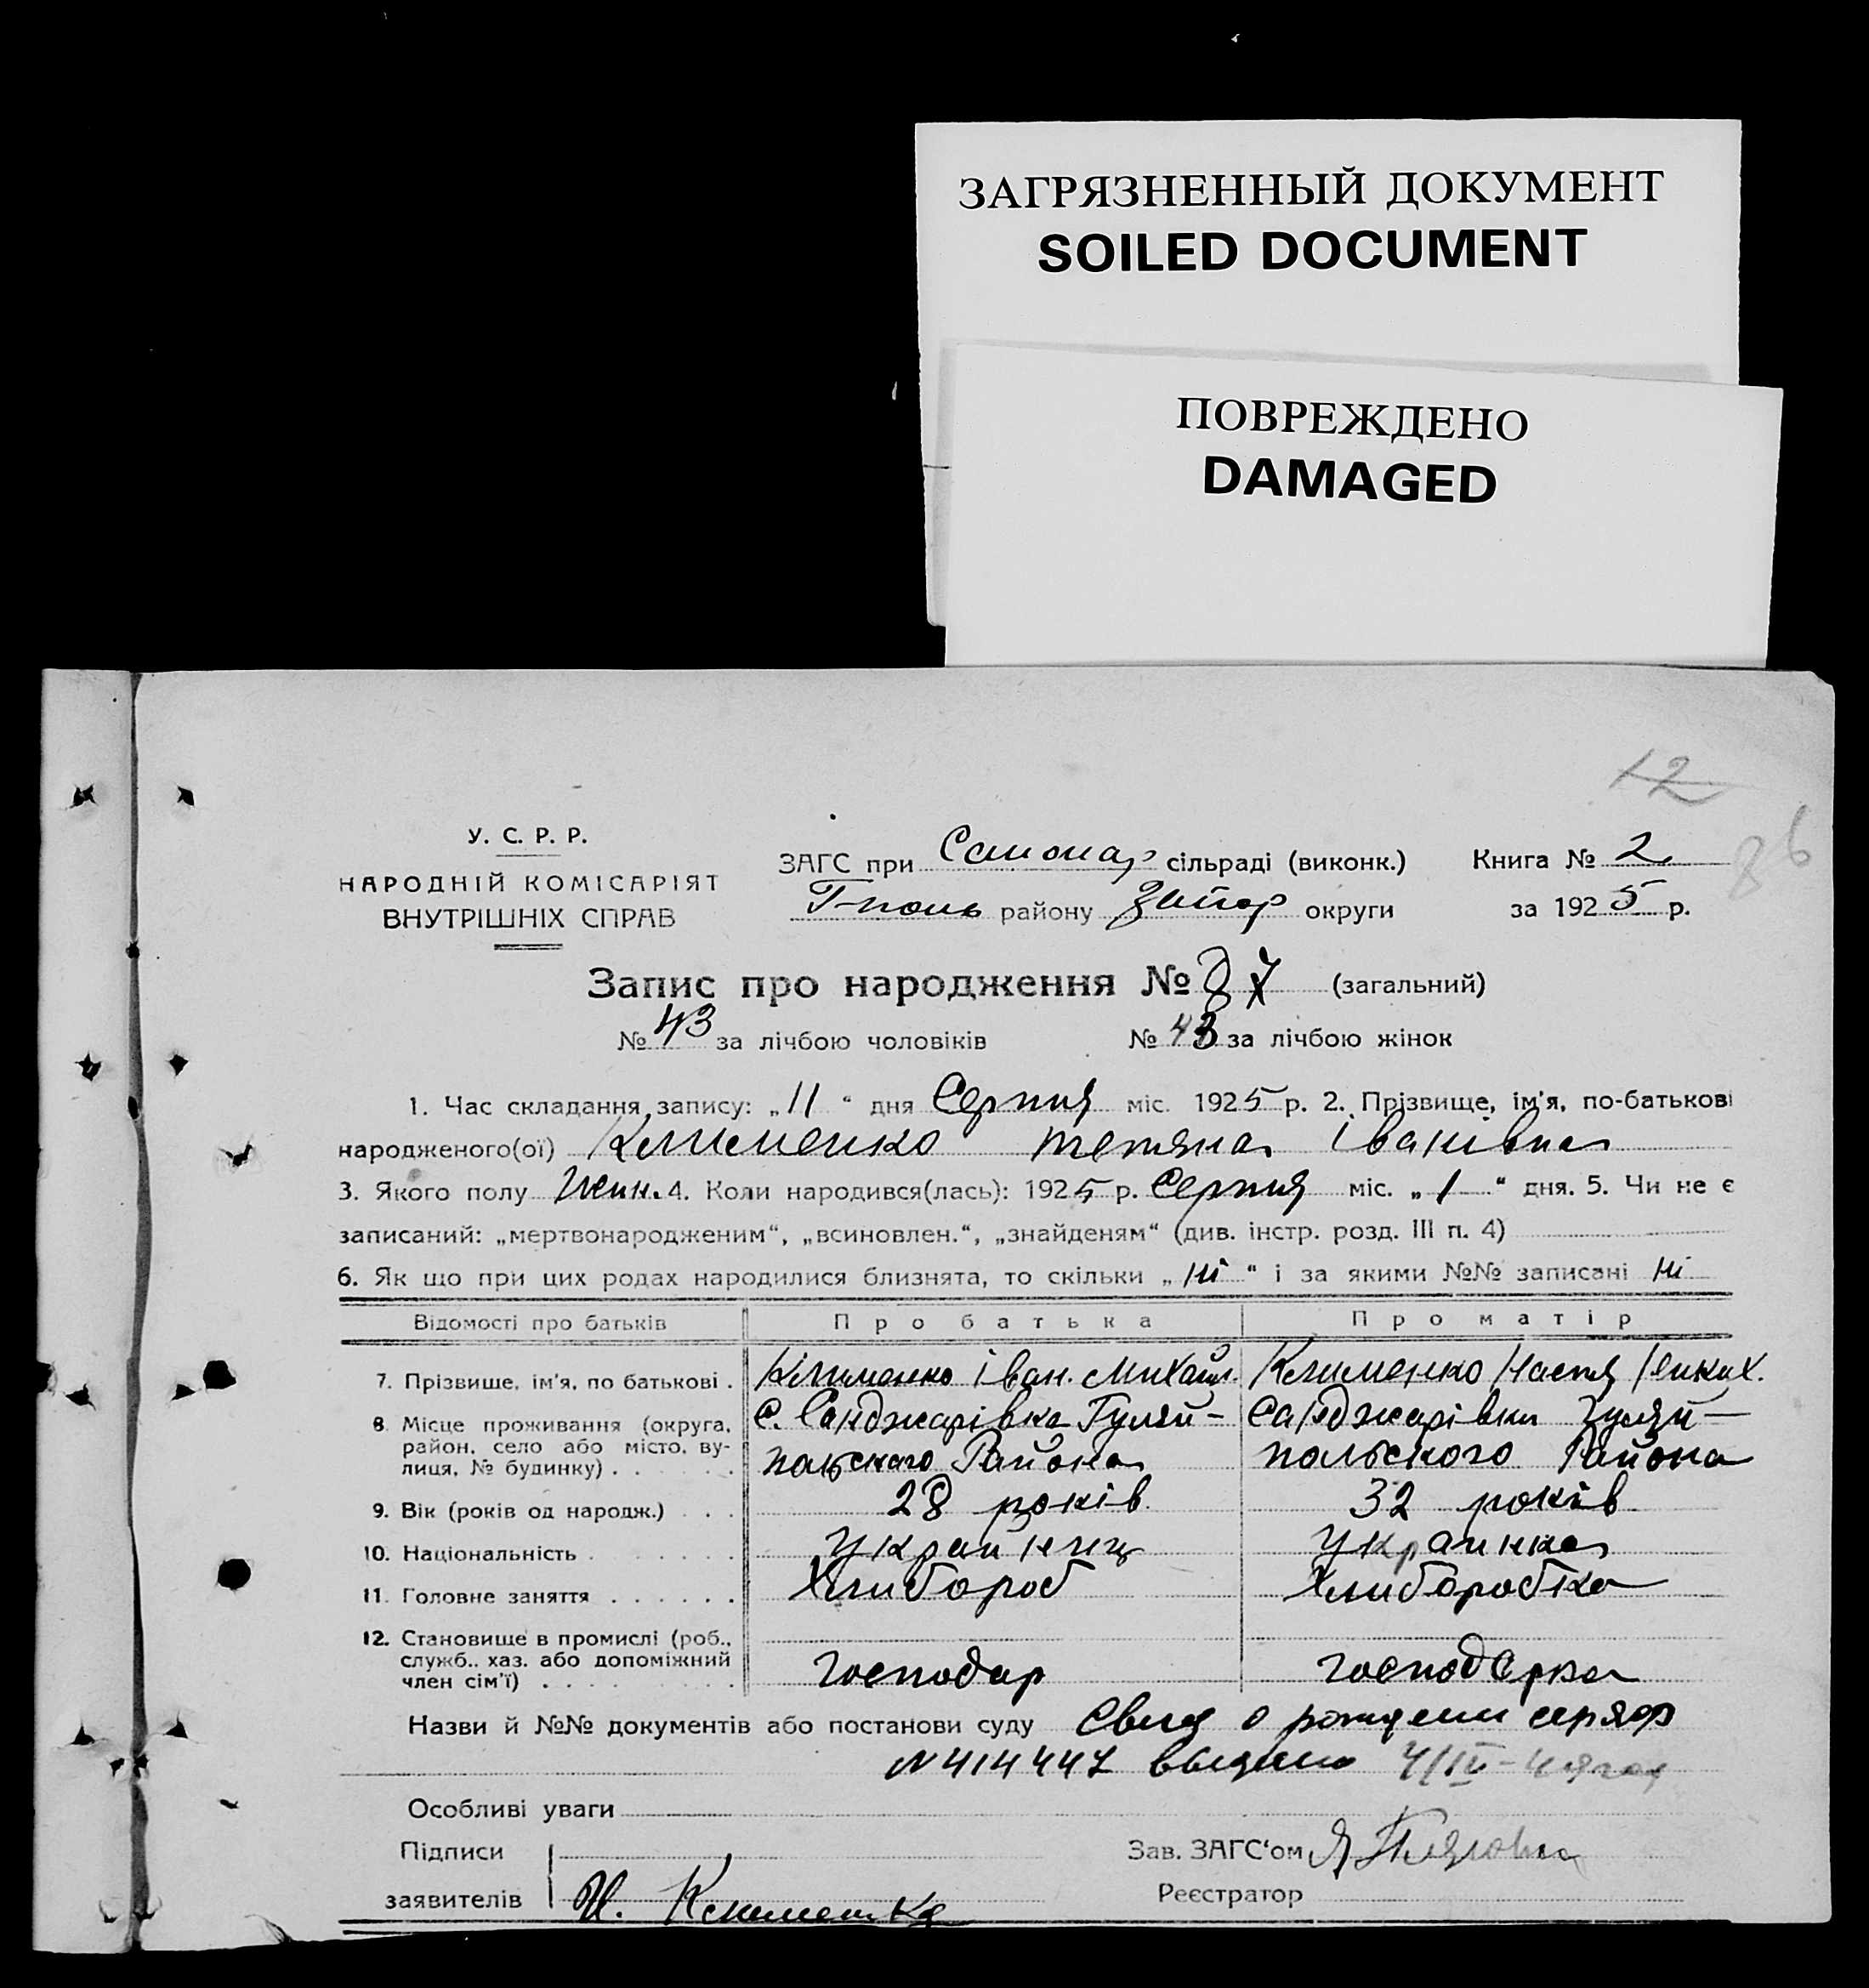 ЗАГРЯЗНЕННЫЙ ДОКУМЕНТ
SOILED DOCUMENT
ПОВРЕЖДЕНО
DAMAGED
12
86
У. С. Р. Р.
НАРОДНІЙ КОМІСАРІЯТ
ВНУТРІШНІХ СПРАВ
ЗАГС при сільраді (виконк.) Книга № 2
Г-поль району Запор округи за 1925 р.
Запис про народження № 87 (загальний)
№ 43 за лічбою чоловіків № 43 за лічбою жінок
1. Час складання запису: „11“ дня Серпня міс. 1925 р. 2. Прізвище, ім'я, по-батькові
народженого(ої) Клименко Тетяна Іванівна
3. Якого полу Жин. 4. Коли народився(лась): 1925 р. Серпня міс. „1“ дня. 5. Чи не є
записаний: „мертвонародженим“, „всиновлен.“, „знайденям“ (див. інстр. розд. III п. 4)
6. Як що при цих родах народилися близнята, то скільки „ні“ і за якими №№ записані ні
Відомості про батьків Про батька Про матір
7. Прізвише, ім'я, по батькові . Клименко Іван. Михайл. Клименко Настя
8. Місце проживання (округа, район, село або місто, вулиця, № будинку) . С. Санджарівка Гуляй-польского Района Санджарівки Гуляй-польского Района
9. Вік (років од народж.) . . . 28 років 32 років
10. Національність . Украйнец Украинка
11. Головне заняття . . . . . . Хлибороб Хлиборобка
12. Становище в промислі (роб., служб.. хаз. або допоміжний член сім'ї) . господар господарка
Назви й №№ документів або постанови суду Свид о рождении серия
N 414447 выдано
Особливі уваги
Підписи Зав. ЗАГС'ом
заявителів И. Клименко Реєстратор